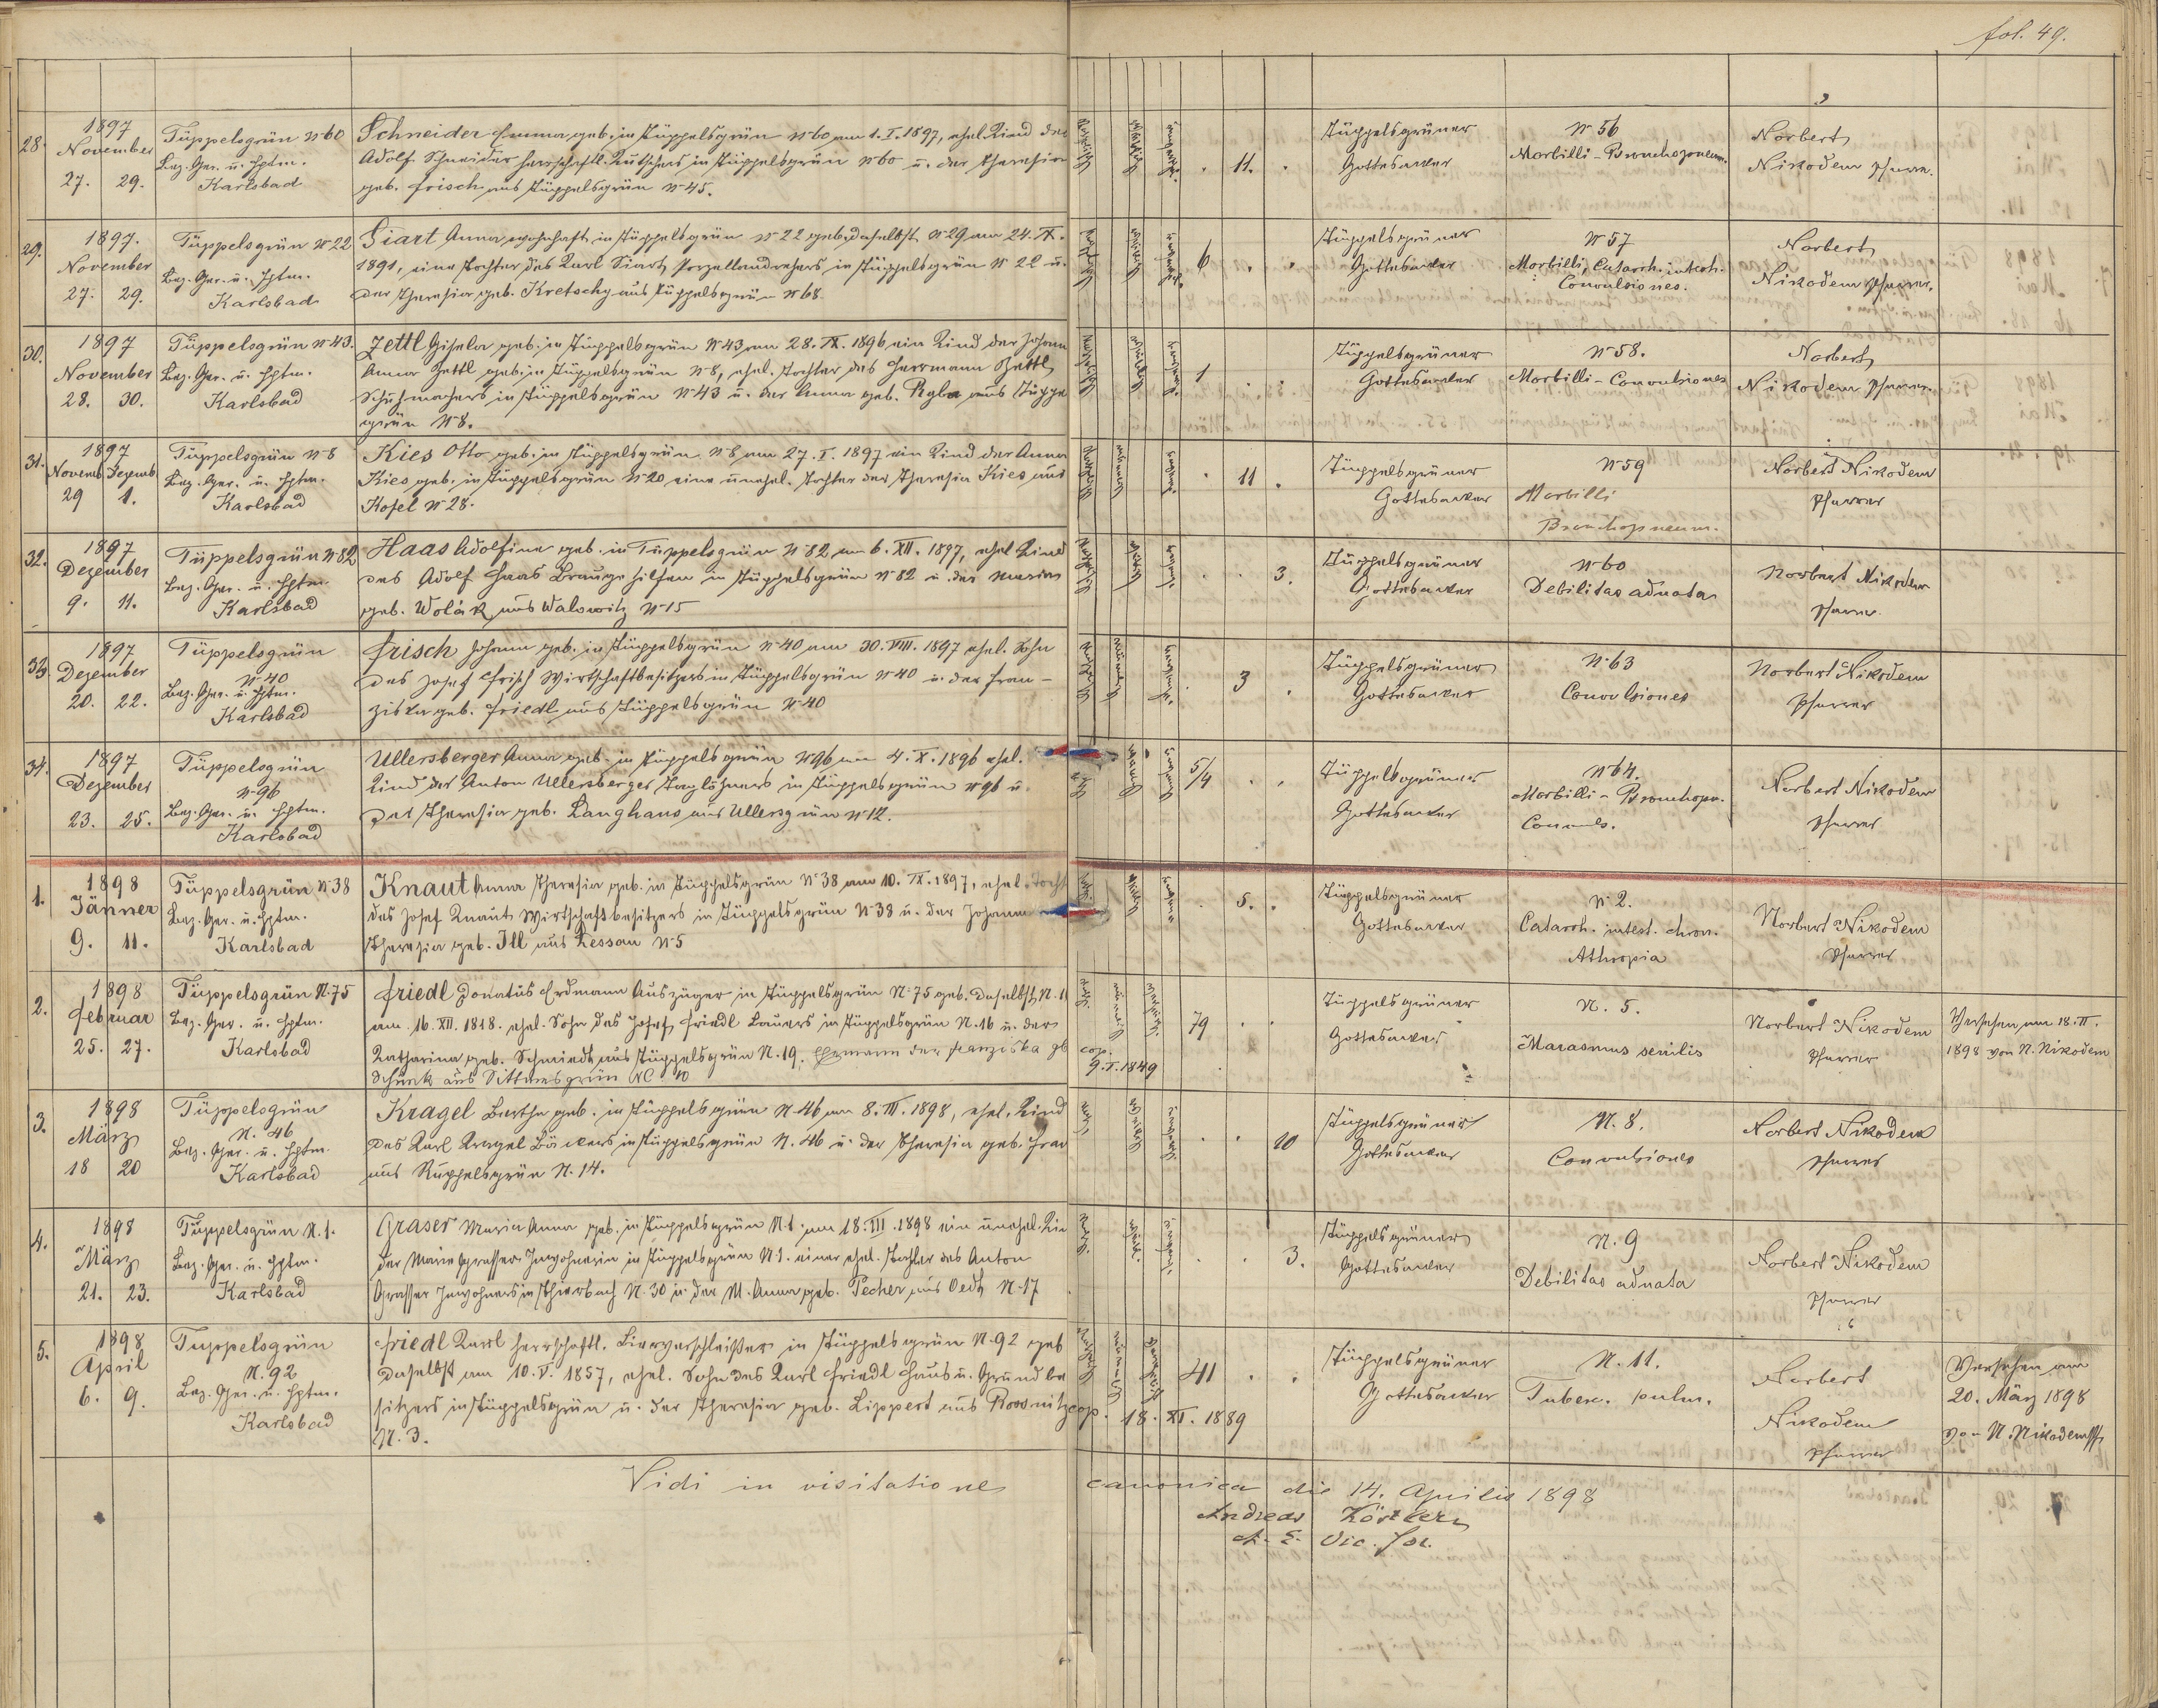 fol. 49.
28.
1897
November
27. 29.
Tüppelsgrün No 60
Bez. Ger. u. Hptm.
Karlsbad
Schneider Emma geb. in Tüppelsgrün No 60 am 1. I. 1897, ehel. Kind des
Adolf Schneider herrschaftl. Kutschers in Tüppelsgrün No 60 u. der Theresia
geb. Frisch aus Tüppelsgrün No 45.
11.
Tüppelsgrüner
Gottesacker
No 56
Morbilli - Bronchopneum.
Norbert
Nikodem Pfarrer.
29.
1897.
November
27. 29.
Tüppelsgrün No 22
Bez. Ger. u. Hptm.
Karlsbad
Siart Anna wohnhaft in Tüppelsgrün No 22 geb. daselbst No 29 am 24. IX.
1891, eine Tochter des Karl Siart Porzellandrehers in Tüppelsgrün No 22 u.
der Theresia geb. Kretschy aus Tüppelsgrün No 68.
6
Tüppelsgrüner
Gottesacker
No 57
Morbilli, Catarrh. intest.
Convulsiones.
Norbert
Nikodem Pfarrer.
30.
1897
November
28. 30.
Tüppelsgrün No 43.
Bez. Ger. u. Hptm.
Karlsbad
Zettl Gisela geb. in Tüppelsgrün No 43 am 28. IX. 1896 ein Kind der Johanna
Anna Zettl geb. in Tüppelsgrün No 8, ehel. Tochter des Herrmann Zettl
Schuhmachers in Tüppelsgrün No 43 u. der Anna geb. Ryba aus Tüppels
grün No 8.
1
Tüppelsgrüner
Gottesacker
No 58.
Morbilli - Convulsiones
Norbert
Nikodem Pfarrer.
31.
1897
Novemb. Dezemb.
29 1.
Tüppelsgrün No 8
Bez. Ger. u. Hptm.
Karlsbad
Kies Otto geb. in Tüppelsgrün No 8 am 27. I. 1897 ein Kind der Anna
Kies geb. in Tüppelsgrün No 20 eine unehel. Tochter der Theresia Kies aus
Kosel No 28.
11
Tüppelsgrüner
Gottesacker
No 59
Morbilli
Bronchopneum.
Norbert Nikodem
Pfarrer
32.
1897
Dezember
9. 11.
Tüppelsgrün No 82
Bez. Ger. u. Hptm.
Karlsbad
Haas Adolfine geb. in Tüppelsgrün No 82 am 6. XII. 1897, ehel. Kind
des Adolf Haas Braugehilfen in Tüppelsgrün No 82 u. der Maria
geb. Wolák aus Walowitz No 15
3.
Tüppelsgrüner
Gottesacker
No 60
Debilitas adnata
Norbert Nikodem
Pfarrer
33.
1897
Dezember
20. 22.
Tüppelsgrün
No 40
Bez. Ger. u. Hptm.
Karlsbad
Frisch Johann geb. in Tüppelsgrün No 40 am 30. VIII. 1897 ehel. Sohn
des Josef Frisch Wirtschaftbesitzers in Tüppelsgrün No 40 u. der Fran-
ziska geb. Friedl aus Tüppelsgrün No 40
3
Tüppelsgrüner
Gottesacker
No 63
Convulsiones
Norbert Nikodem
Pfarrer
34.
1897
Dezember
23. 25.
Tüppelsgrün
No 96
Bez. Ger. u. Hptm.
Karlsbad
Ullersberger Anna geb. in Tüppelsgrün No 96 am 4. X. 1896 ehel.
Kind des Anton Ullersberger Taglöhners in Tüppelsgrün No 96 u.
der Theresia geb. Langhans aus Ullersgrün No 12.
5/4
Tüppelsgrüner
Gottesacker
No 64.
Morbilli - Bronchopn.
Convuls.
Norbert Nikodem
Pfarrer
1.
1898
Jänner
9. 11.
Tüppelsgrün No 38
Bez. Ger. u. Hptm.
Karlsbad
Knaut Anna Theresia geb. in Tüppelsgrün No 38 am 10. IX. 1897, ehel. Tocht
des Josef Knaut Wirtschaftbesitzers in Tüppelsgrün No 38 u. der Johanna
Theresia geb. Ill aus Lessau No 5
5.
Tüppelsgrüner
Gottesacker
No 2.
Catarrh. intest. chron.
Athropia
Norbert Nikodem
Pfarrer
2.
1898
Februar
25. 27.
Tüppelsgrün N. 75
Bez. Ger. u. Hptm.
Karlsbad
Friedl Donatus Erdmann Auszüger in Tüppelsgrün No 75 geb. daselbst N. 1
am 16. XII. 1818. ehel. Sohn des Josef Friedl Bauers in Tüppelsgrün N. 16 u. der
Katharina geb. Schmiedt aus Tüppelsgrün N. 19. Ehemann der Franziska gb
Schunk aus Sittmesgrün NC 10
cop.
9. I. 1849
79
Tüppelsgrüner
Gottesacker
N. 5.
Marasmus senilis
Norbert Nikodem
Pfarrer
Versehen am 18. II.
1898 von N. Nikodem
3.
1898
März
18 20
Tüppelsgrün
N. 46
Bez. Ger. u. Hptm.
Karlsbad
Kragel Bertha geb. in Tüppelsgrün N. 46 am 8. III. 1898, ehel. Kind
des Karl Kragel Bäckers in Tüppelsgrün N. 46 u. der Theresia geb.
aus Ruppelsgrün N. 14.
10
Tüppelsgrüner
Gottesacker
N. 8.
Convulsiones
Norbert Nikodem
Pfarrer
4.
1898
März
21. 23.
Tüppelsgrün N. 1.
Bez. Ger. u. Hptm.
Karlsbad
Graser Maria Anna geb. in Tüppelsgrün N. 1. am 18. III. 1898 ein unehel. Kin
der Marie Grasser Inwohnerin in Tüppelsgrün N. 1. einer ehel. Tochter des Anton
Grasser Inwohners in Thierbach N. 30 u. der M. Anna geb. Pecher aus Oedt N. 17
3.
Tüppelsgrüner
Gottesacker
N. 9
Debilitas adnata
Norbert Nikodem
Pfarrer
5.
1898
April
6. 9.
Tüppelsgrün
N. 92
Bez. Ger. u. Hptm.
Karlsbad
Friedl Karl herrschaftl. Bierverschleißer in Tüppelsgrün N. 92 geb
daselbst am 10. V. 1857, ehel. Sohn des Karl Friedl Haus u. Grundbe
sitzers in Tüppelsgrün u. der Theresia geb. Lippert aus Roosnitz
N. 3.
cop. 18. XI. 1889
41
Tüppelsgrüner
Gottesacker
N. 11.
Tuberc. pulm.
Norbert
Nikodem
Pfarrer
Versehen am
20. März 1898
von N. Nikodem
Vidi in visitatione canonica die 14. Aprilis 1898
Andreas
A. E. Vic. for.